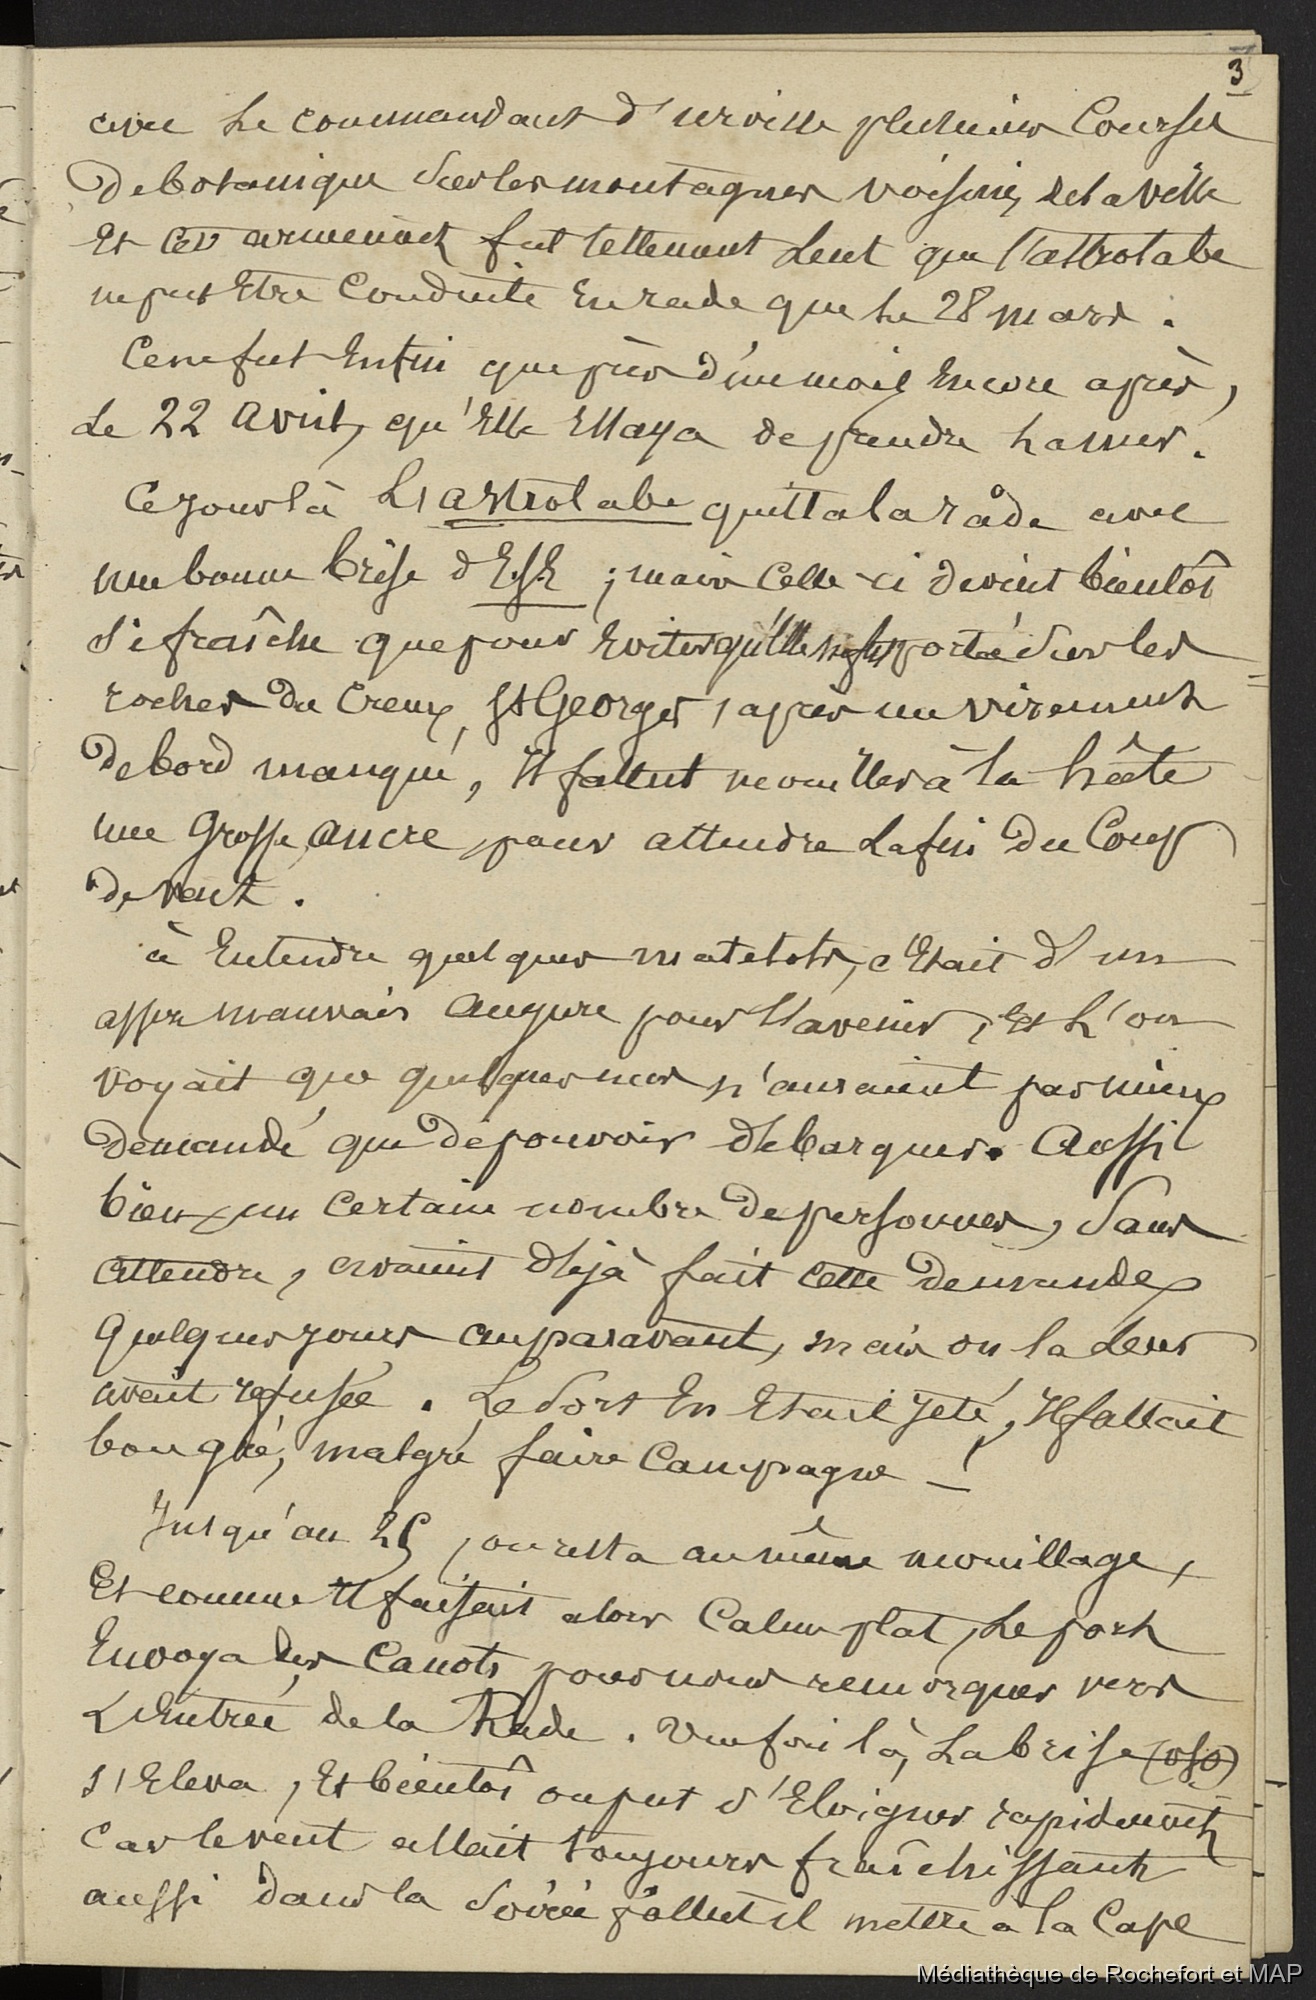 3
avec le commandant d'urville plusieurs Courses
de botanique sur les montagnes voisines de la ville
Et cet armement fut tellement Lent que l'astrolabe
ne put Etre Conduite En rade que le 28 mars.
Ce ne fut Enfin que près d'un mois Encore après,
Le 22 avril, qu'Elle Essaya de prendre la mer.
Ce jour là L'astrolabe quitta la râde avec
une bonne brise d'ESE ; mais celle-ci devint bientôt
si fraîche que pour Eviter qu'Elle portée sur les
rochers du Creux St Georges, après un virement
de bord manqué, Il fallut mouiller à la hâte
une Grosse ancre, pour attendre La fin du Coup
de vent.
à Entendre quelques matelots, c'Etait d'un
assez mauvais augure pour l'avenir, Et L'on
voyait que quelques uns n'auraient pas mieux
demandé que de pouvoir débarquer. Aussi
bien, un certain nombre de personnes, sans
attendre, avaient déjà fait cette demande
quelques jours auparavant, mais on la leur
avait refusée. Le sort En Etait jeté, Il fallait
bon gré, malgré faire Campagne -!
Jusqu'au 25, on resta au même mouillage,
Et comme Il faisait alors Calme plat, Le port
Envoya des Canots pour nous remorquer vers
L'Entrée de la Rade. Une fois là, La brise (OSO)
s'Eleva, Et bientôt on put s'Eloigner rapidement
Car le vent allait toujours fraîchissant
aussi dans la soirée fallut il mettre à la Cape
Médiathèque de Rochefort et MAP